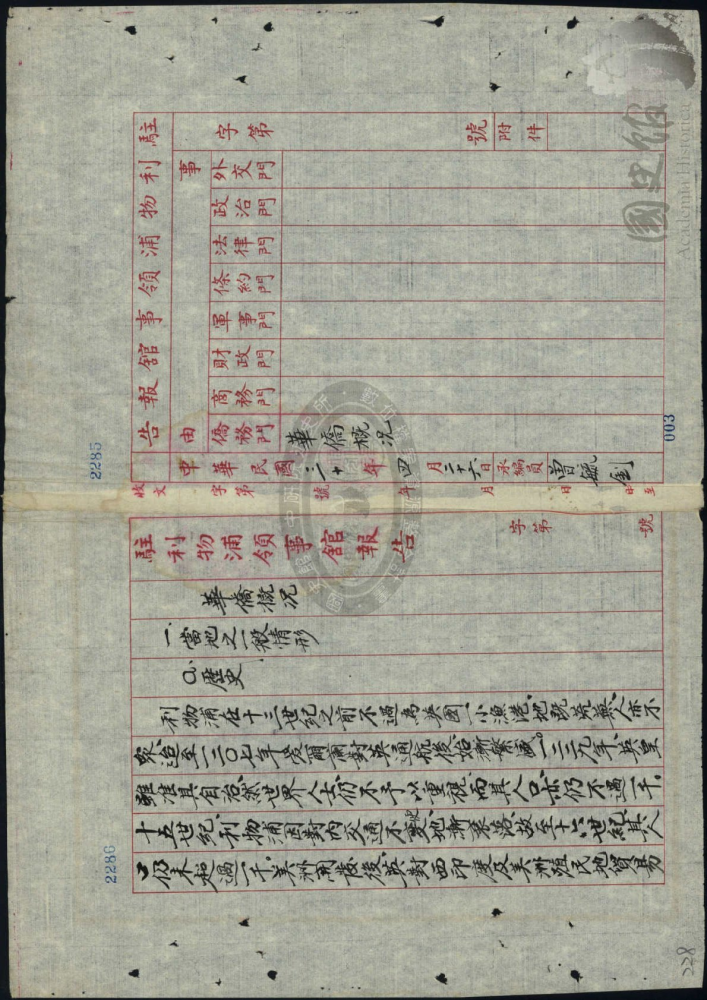 駐利物浦領事館報告
字第 號 附件
事由
外交門
政治門
法律門
條約門
軍事門
財政門
商務門
僑務門 華僑概況
中華民國三十年四月二十六日 承編員 曾毓釗
收文 字第 號 年 月 日 時至
駐利物浦領事館報告 字第 號
華僑概況
一、當地之一般情形
a. 歷史
利物浦在十三世紀之前不過為英國一小漁港、地既荒蕪、人亦不
眾、迨至一二〇七年愛爾蘭對英通航後、始漸繁盛。一二二九年、英皇
雖准其自治、然世界人士仍不予以重視、而其人口亦仍不過一千。
十五世紀、利物浦因對內交通不變、地漸衰落、故至十六世紀、其人
口仍未超過一千、美洲開發後、英對西印度及美洲殖民地貿易
2285
2286
003
228
國史館